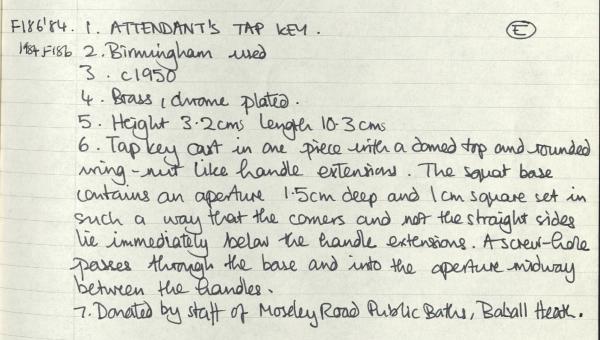 F186'84. 1. ATTENDANT'S TAP KEY. E
1984 F186 2. Birmingham used
3. c1950
4. Brass, chrome plated.
5. Height 3.2cms Length 10.3cms
6. Tap key cast in one piece with a domed top and rounded
wing-nut like handle extensions. The squat base
contains an aperture 1.5cm deep and 1cm square set in
such a way that the corners and not the straight sides
lie immediately below the handle extensions. A screw-hole
passes through the base and into the aperture midway
between the handles.
7. Donated by staff of Moseley Road Public Baths, Balsall Heath.